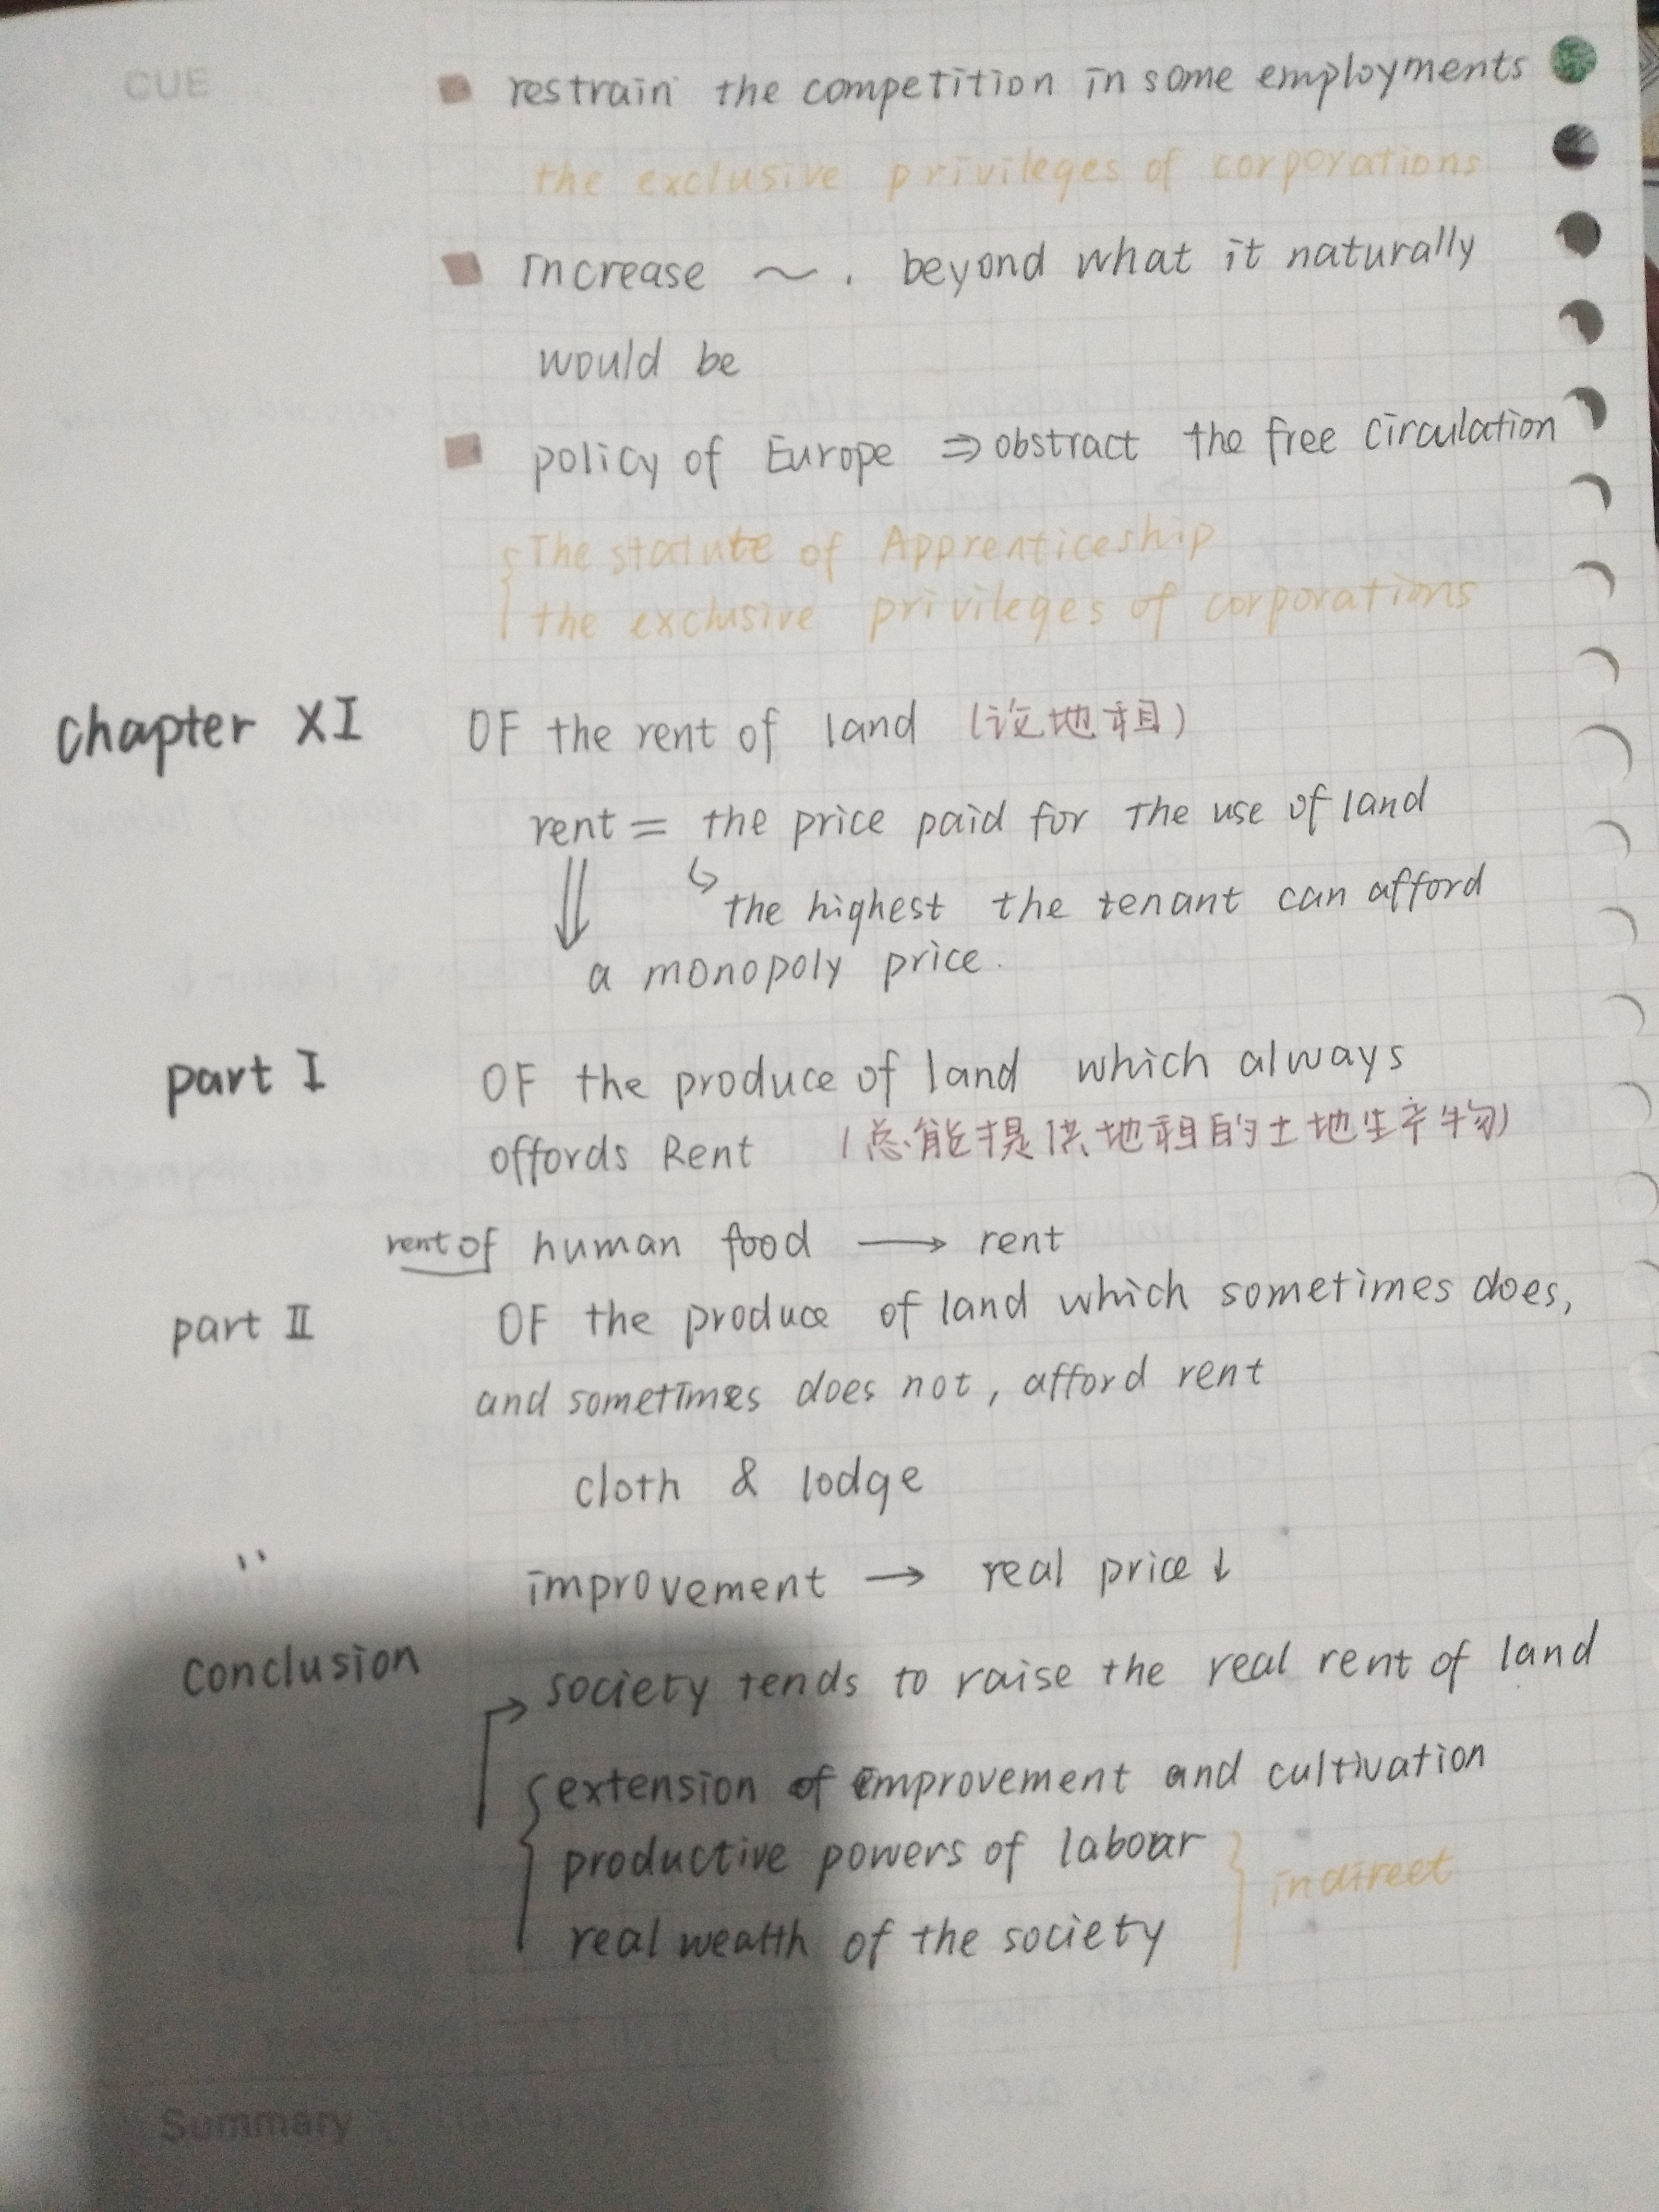 CUE
restrain the competition in some employments
the exclusive privileges of corporations
increase ～. beyond what it naturally
would be
policy of Europe ⇒ obstract the free circulation
The statute of Apprenticeship
the exclusive privileges of corporations
chapter XI OF the rent of land (论地租)
rent = the price paid for the use of land
↳ the highest the tenant can afford
⇓ a monopoly price.
part I OF the produce of land which always
offords Rent (总能提供地租的土地生产物)
rent of human food → rent
part II OF the produce of land which sometimes does,
and sometimes does not, afford rent
cloth & lodge
improvement → real price ↓
conclusion society tends to raise the real rent of land
extension of improvement and cultivation
productive powers of labour
indirect
real wealth of the society
Summary